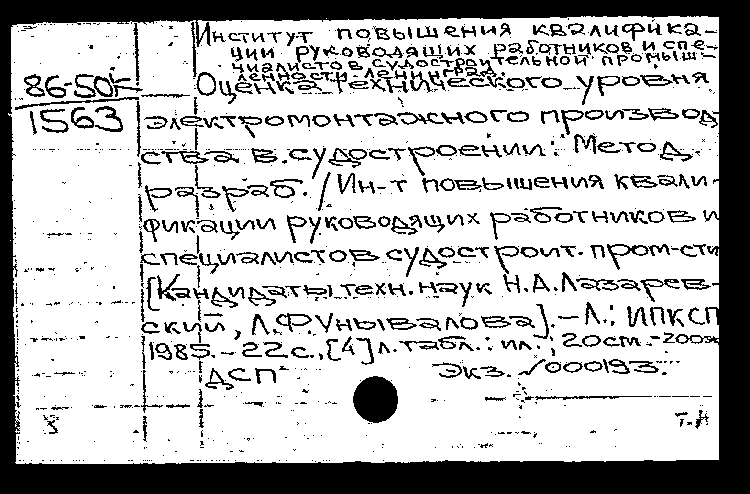 Институт повышения квалифика-
ции руководящих работников и спе-
циалистов судостроительной промыш-
ленности. Ленинград.
86-50к Оценка технического уровня
1563 электромонтажного производ
ства в судостроении: Метод.
разраб. / Ин-т повышения квали-
фикации руководящих работников и
специалистов судостроит. пром-сти
[Кандидаты техн. наук Н.А. Лазарев-
ский, Л.Ф. Унывалова]. – Л.: ИПКСП
1985. – 22 с., [4] л. табл.: ил.; 20 см. – 200э
ДСП Экз. √000193.
Т.Н